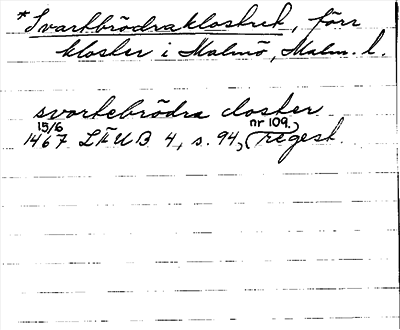 *Svartbrödraklostret, förr
kloster i Malmö, Malm. l.
svortebrödra closter
15/6 nr 109.)
1467 LÄUB 4, s. 94, (regest.